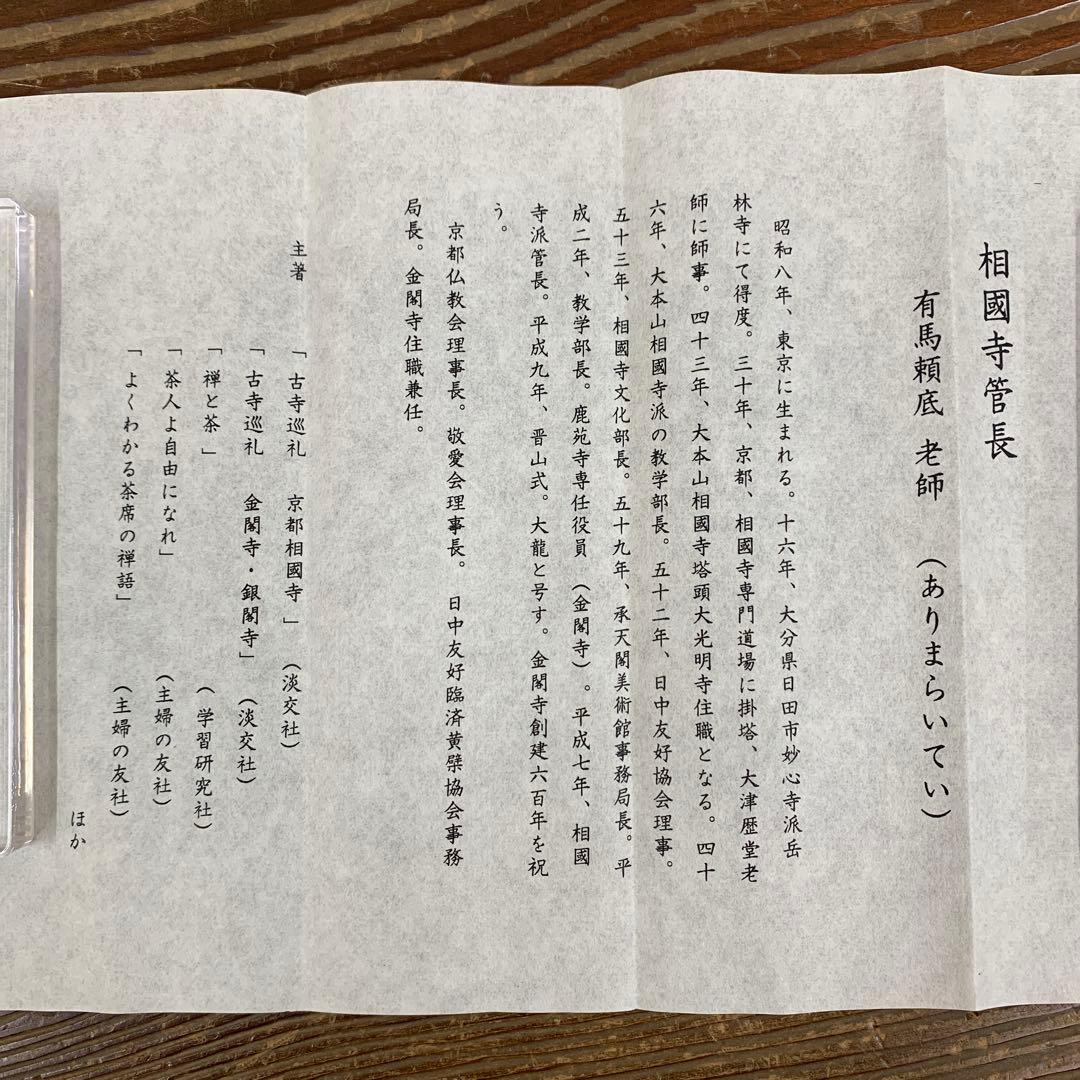 相國寺管長
有馬頼底 老師 (ありまらいてい)
昭和八年、東京に生まれる。十六年、大分県日田市妙心寺派岳
林寺にて得度。三十年、京都、相國寺専門道場に掛塔、大津歴堂老
師に師事。四十三年、大本山相國寺塔頭大光明寺住職となる。四十
六年、大本山相國寺派の教学部長。五十二年、日中友好協会理事。
五十三年、相國寺文化部長。五十九年、承天閣美術館事務局長。平
成二年、教学部長。鹿苑寺専任役員(金閣寺)。平成七年、相國
寺派管長。平成九年、晋山式。大龍と号す。金閣寺創建六百年を祝
う。
京都仏教会理事長。敬愛会理事長。日中友好臨済黄檗協会事務
局長。金閣寺住職兼任。
主著 「古寺巡礼 京都相國寺」 (淡交社)
「古寺巡礼 金閣寺・銀閣寺」 (淡交社)
「禅と茶」 (学習研究社)
「茶人よ自由になれ」 (主婦の友社)
「よくわかる茶席の禅語」 (主婦の友社)
ほか